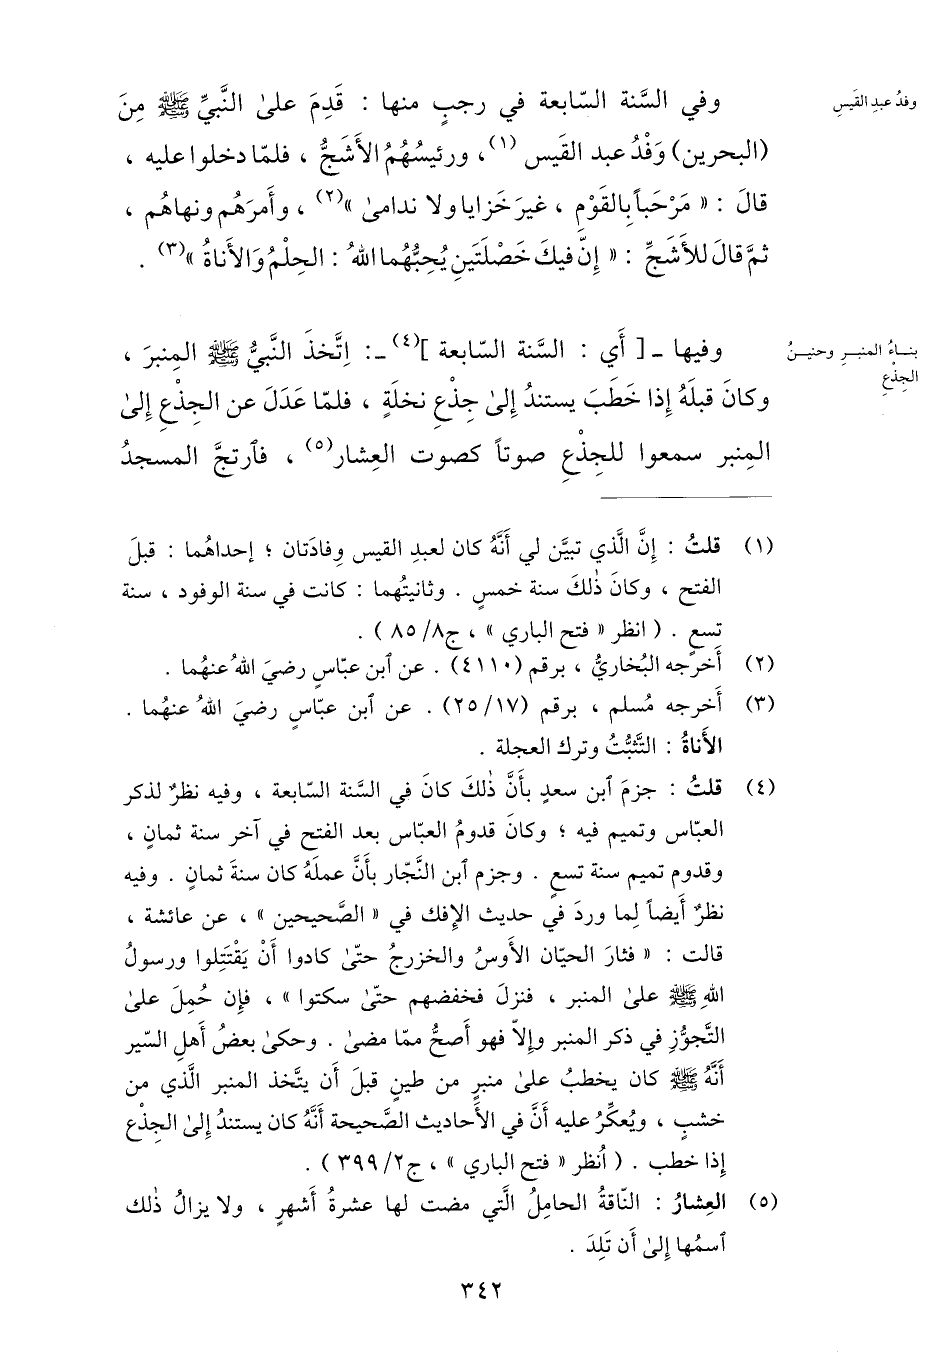 وفدُ عبدِ القَيسِ
وفي السَّنة السّابعة في رجبٍ منها : قَدِمَ علىٰ النَّبيِّ ﷺ مِنَ
(البحرين) وَفْدُ عبد القَيس (١)، ورئيسُهُمُ الأَشَجُّ ، فلمّا دخلوا عليه ،
قالَ : « مَرْحَباً بِالقَوْمِ ، غيرَ خَزايا ولا ندامىٰ »(٢) ، وأَمرَهُم ونهاهُم ،
ثمَّ قالَ للأَشَجِّ : « إِنّ فيكَ خَصْلَتَينِ يُحِبُّهُما اللهُ : الحِلْمُ وَالأَناةُ »(٣) .
بنـاءُ المنبـرِ وحنيـنُ
الجِذْعِ
وفيها ـ [ أَي : السَّنة السّابعة ](٤) ـ : اِتَّخذَ النَّبيُّ ﷺ المِنبرَ ،
وكانَ قبلَهُ إِذا خَطَبَ يستندُ إِلىٰ جِذْعِ نخلَةٍ ، فلمّا عَدَلَ عن الجِذْعِ إِلىٰ
المِنبر سمعوا للجِذْعِ صوتاً كصوت العِشار(٥) ، فٱرتجَّ المسجدُ
(١) قلتُ : إِنَّ الَّذي تبيَّن لي أَنَّهُ كان لعبدِ القيس وِفادَتان ؛ إحداهُما : قبلَ
الفتح ، وكانَ ذٰلكَ سنة خمسٍ . وثانيتُهما : كانت في سنة الوفود ، سنة
تسعٍ . ( انظر « فتح الباري » ، ج٨/ ٨٥ ) .
(٢) أَخرجه البُخاريُّ ، برقم (٤١١٠) . عن ٱبن عبّاسٍ رضيَ اللهُ عنهُما .
(٣) أَخرجه مُسلم ، برقم (٢٥/١٧) . عن ٱبن عبّاسٍ رضيَ اللهُ عنهُما .
الأَناةُ : التَّثبُّتُ وترك العجلة .
(٤) قلتُ : جزمَ ٱبن سعدٍ بأَنَّ ذٰلكَ كانَ في السَّنة السّابعة ، وفيه نظرٌ لذكر
العبّاس وتميم فيه ؛ وكانَ قدومُ العبّاس بعد الفتح في آخر سنة ثمانٍ ،
وقدوم تميم سنة تسعٍ . وجزم ٱبن النَّجّار بأَنَّ عملَهُ كان سنةَ ثمانٍ . وفيه
نظرٌ أَيضاً لِما وردَ في حديث الإِفك في « الصَّحيحين » ، عن عائشة ،
قالت : « فثارَ الحيّان الأَوسُ والخزرجُ حتّىٰ كادوا أَنْ يَقْتَتِلوا ورسولُ
اللهِ ﷺ علىٰ المنبر ، فنزلَ فخفضهم حتّىٰ سكتوا » ، فإِن حُمِلَ علىٰ
التَّجوُّزِ في ذكر المنبر وإِلاّ فهو أَصحُّ ممّا مضىٰ . وحكىٰ بعضُ أَهلِ السّير
أَنَّهُ ﷺ كان يخطبُ علىٰ منبرٍ من طينٍ قبلَ أَن يتَّخذ المنبر الَّذي من
خشبٍ ، ويُعكِّرُ عليه أَنَّ في الأَحاديث الصَّحيحة أَنَّهُ كان يستندُ إِلىٰ الجِذْع
إِذا خطب . ( اُنظر « فتح الباري » ، ج٢/ ٣٩٩ ) .
(٥) العِشارُ : النّاقةُ الحامِلُ الَّتي مضت لها عشرةُ أَشهرٍ ، ولا يزالُ ذٰلك
ٱسمُها إِلىٰ أَن تَلِدَ .
٣٤٢